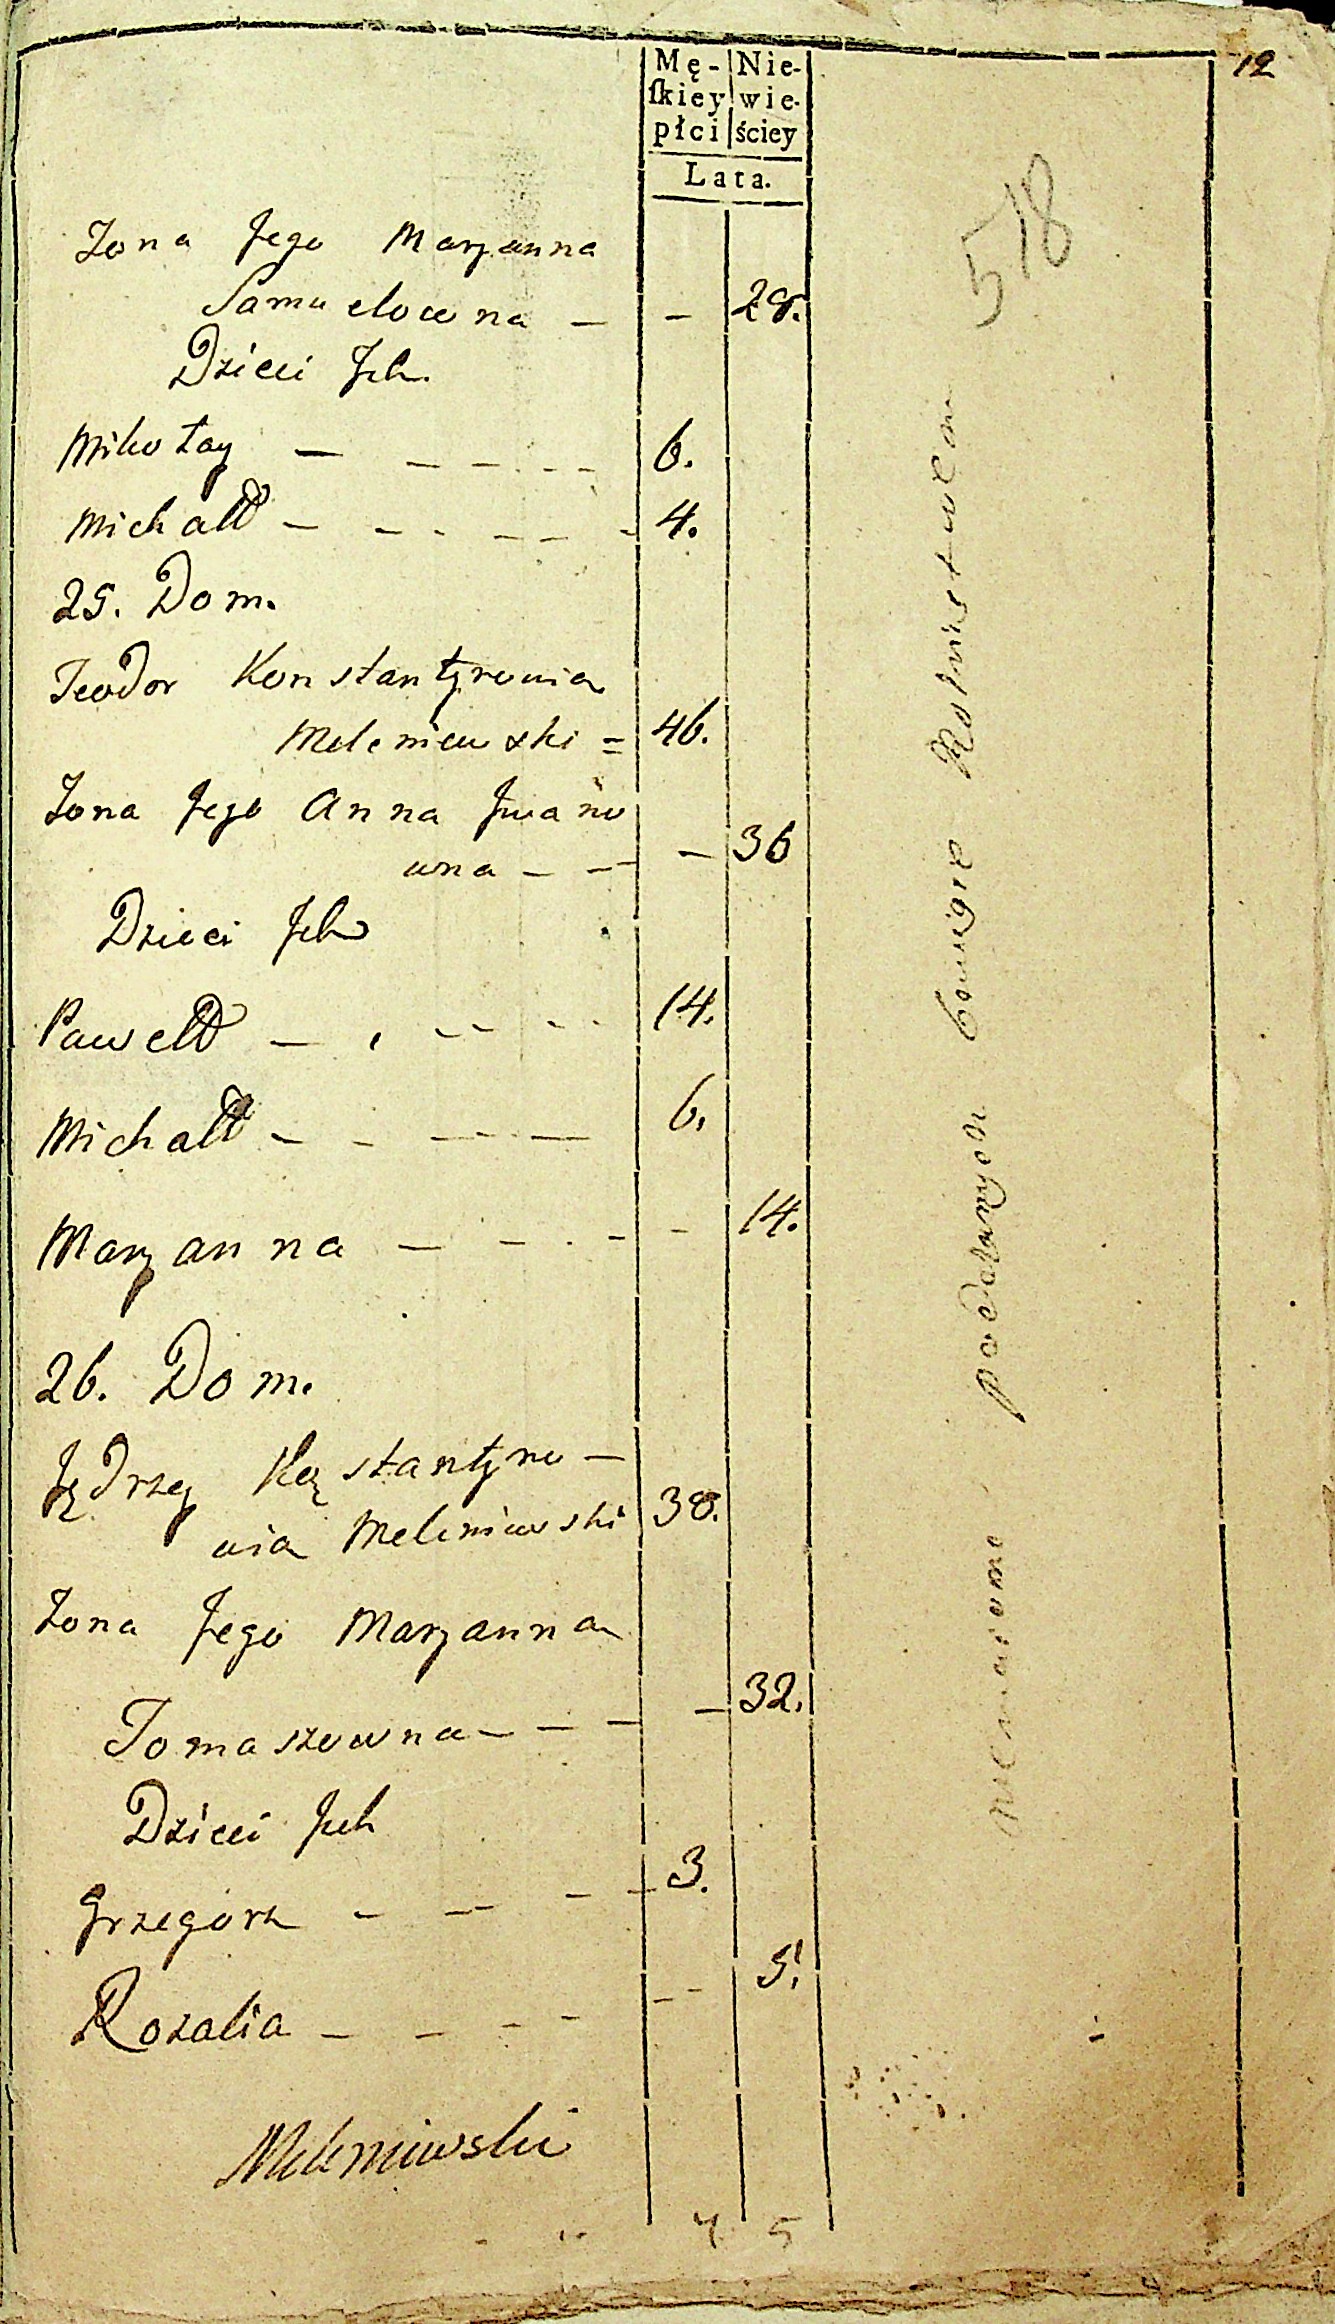 12
Mę- Nie-
ſkiey wie-
płci ściey
Lata.
518
Zona Jego Maryanna
Samuelowna – – 28.
Dzieci Jch.
Mikołay – – – – – – 6.
Michałł – – – – – – 4.
25. Dom.
Teodor Konstantynowicz
Meleniewski = 46.
Zona Jego Anna Jwano
wna – – – – 36
Dzieci Jch
Pawełł – – – – – 14.
Michałł – – – – – 6.
Maryanna – – – – – 14.
26. Dom.
Jędrzey Kąstantyno –
wicz Meleniewski 38.
Zona Jego Maryanna
Tomaszowna – – – – 32.
Dzieci Jch
Grzegorz – – – – 3.
Rozalia – – – – – – 5.
Meleniewski
7. 5